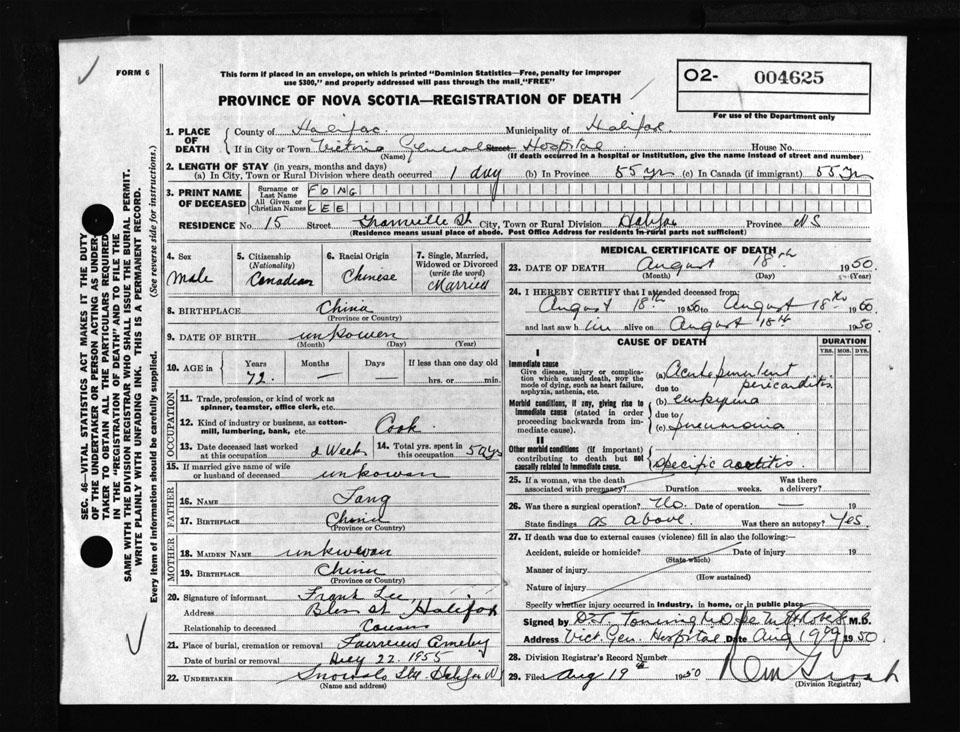 FORM 6
This form if placed in an envelope, on which is printed "Dominion Statistics—Free, penalty for improper
use $300," and properly addressed will pass through the mail "FREE"
O2- 004625
For use of the Department only
PROVINCE OF NOVA SCOTIA—REGISTRATION OF DEATH
SEC. 46–VITAL STATISTICS ACT MAKES IT THE DUTY
OF THE UNDERTAKER OR PERSON ACTING AS UNDER-
TAKER TO OBTAIN ALL THE PARTICULARS REQUIRED
IN THE "REGISTRATION OF DEATH" AND TO FILE THE
SAME WITH THE DIVISION REGISTRAR WHO SHALL ISSUE THE BURIAL PERMIT.
WRITE PLAINLY WITH UNFADING INK. THIS IS A PERMANENT RECORD.
Every item of information should be carefully supplied. (See reverse side for instructions.)
1. PLACE OF DEATH
County of Halifax Municipality of Halifax
If in City or Town Victoria General Street Hospital House No.
(Name) (If death occurred in a hospital or institution, give the name instead of street and number)
2. LENGTH OF STAY (in years, months and days)
(a) In City, Town or Rural Division where death occurred 1 day (b) In Province 55 yrs (c) In Canada (if immigrant) 55 yrs
3. PRINT NAME OF DECEASED
Surname or Last Name FONG
All Given or Christian Names LEE
RESIDENCE No. 15 Street Granville St City, Town or Rural Division Halifax Province NS
(Residence means usual place of abode. Post Office Address for residents in rural parts not sufficient)
4. Sex
Male
5. Citizenship (Nationality)
Canadian
6. Racial Origin
Chinese
7. Single, Married, Widowed or Divorced (write the word)
Married
8. BIRTHPLACE China
(Province or Country)
9. DATE OF BIRTH unkowen
(Month) (Day) (Year)
10. AGE in Years Months Days If less than one day old
72. — hrs. or min.
OCCUPATION
11. Trade, profession, or kind of work as
spinner, teamster, office clerk, etc.
12. Kind of industry or business, as cotton-
mill, lumbering, bank, etc. Cook
13. Date deceased last worked at this occupation 2 Weeks
14. Total yrs. spent in this occupation 50 yrs
15. If married give name of wife
or husband of deceased unkowan
FATHER
16. NAME
17. BIRTHPLACE China
(Province or Country)
MOTHER
18. MAIDEN NAME
19. BIRTHPLACE China
(Province or Country)
20. Signature of informant Frank Lee
Address St Halifax
Relationship to deceased Cousin
21. Place of burial, cremation or removal Fairview
Date of burial or removal 22. 1955
22. UNDERTAKER Halifax N
(Name and address)
MEDICAL CERTIFICATE OF DEATH
23. DATE OF DEATH August 18th 1950.
(Month) (Day) (Year)
24. I HEREBY CERTIFY that I attended deceased from:
August 18th 1950 to August 18th 1950
and last saw h im alive on August 18th 1950.
CAUSE OF DEATH DURATION
YRS. MOS. DYS.
I
Immediate cause
Give disease, injury or compli-
cation which caused death, NOT the
mode of dying, such as heart failure,
asphyxia, asthenia, etc.
(a) Acute purulent
due to pericarditis
Morbid conditions, if any, giving rise to
immediate cause (stated in order
proceeding backwards from im-
mediate cause).
(b) empyema
due to
(c) pneumonia
II
Other morbid conditions (if important)
contributing to death but not
causally related to immediate cause.
specific aortitis.
25. If a woman, was the death
associated with pregnancy? Duration weeks. Was there
a delivery?
26. Was there a surgical operation? No. Date of operation — 19
State findings as above. Was there an autopsy? Yes.
27. If death was due to external causes (violence) fill in also the following:—
Accident, suicide or homicide? Date of injury 19
(State which)
Manner of injury
(How sustained)
Nature of injury
Specify whether injury occurred in industry, in home, or in public place
Signed by M.D.
Address Vict. Gen. Hospital Date Aug 19 1950.
28. Division Registrar's Record Number
29. Filed Aug 19 1950
(Division Registrar)